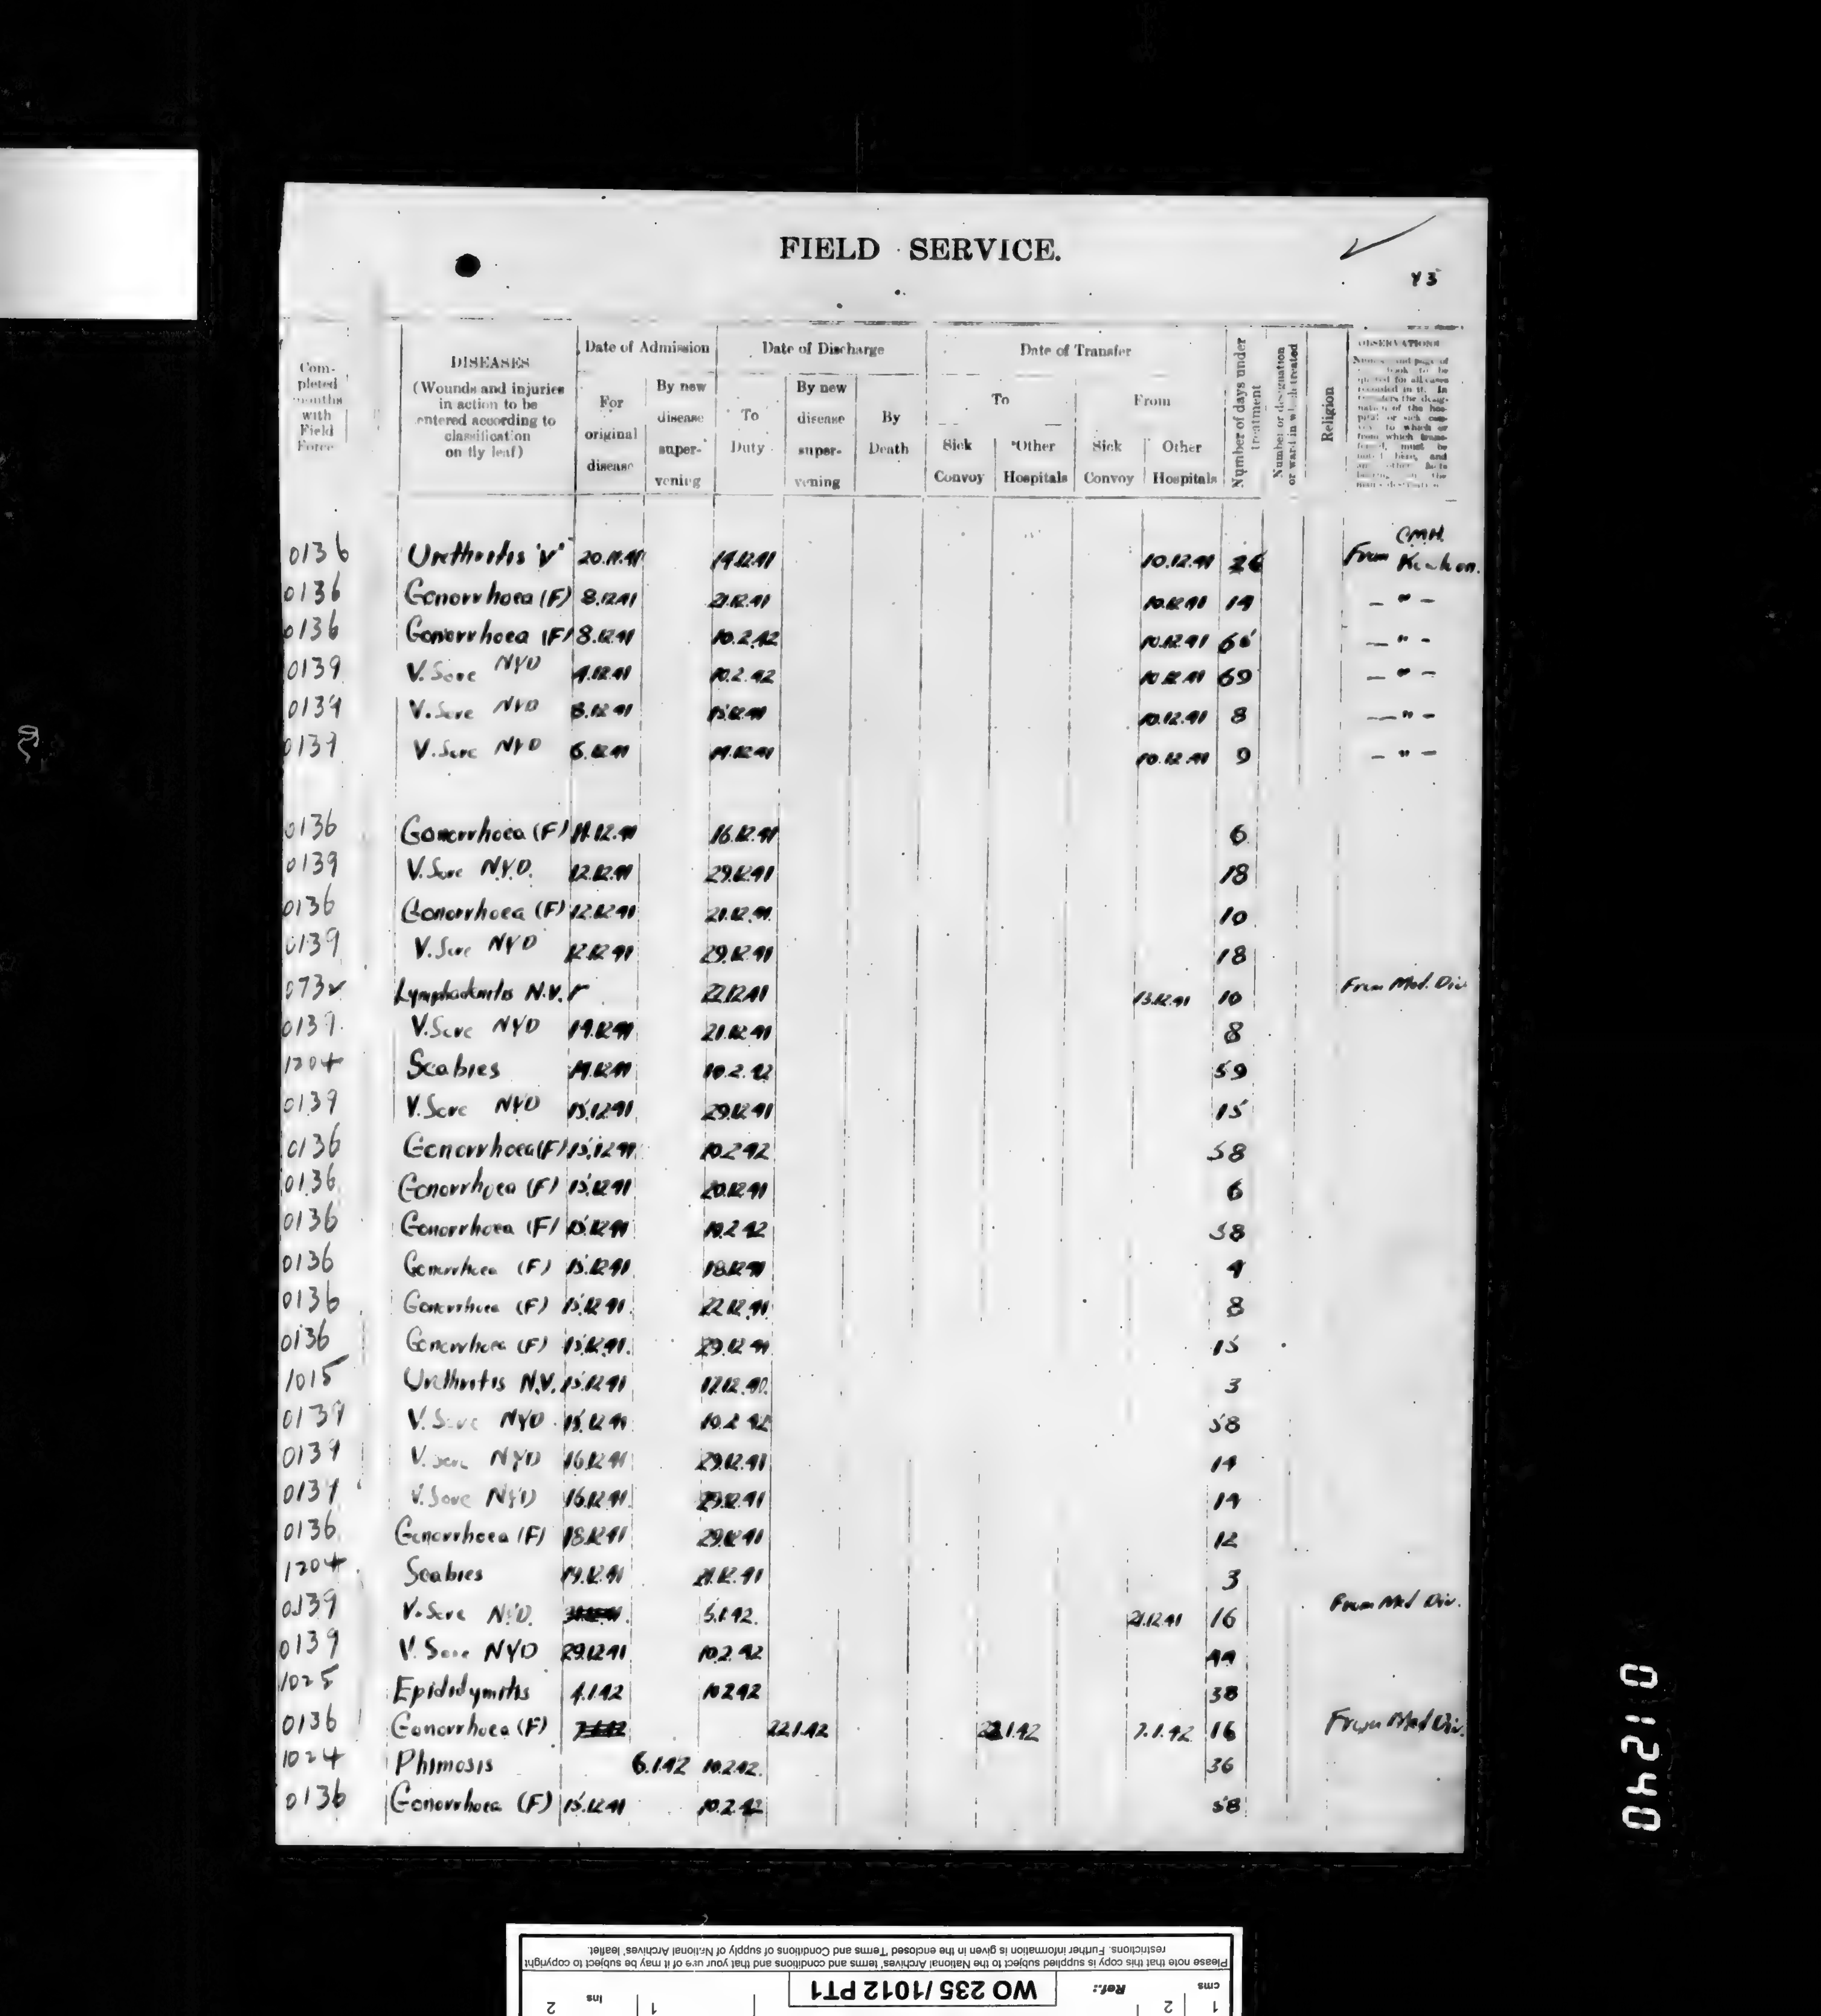 FIELD SERVICE.
43
Completed months with Field Force
DISEASES
(Wounds and injuries in action to be entered according to classification on fly leaf)
Date of Admission
For original disease
By new disease supervening
Date of Discharge
To Duty
By new disease supervening
By Death
Date of Transfer
To
Sick Convoy
*Other Hospitals
From
Sick Convoy
Other Hospitals
Number of days under treatment
Number or designation or ward in which treated
Religion
OBSERVATIONS
C.M.H.
0136 Urethritis 'V' 20.11.41 14.12.41 10.12.41 From
0136 Gonorrhoea (F) 8.12.41 21.12.41 10.12.41 14 — " —
0136 Gonorrhoea (F) 8.12.41 10.2.42 10.12.41 — " —
0139 V. Sore NYD 4.12.41 10.2.42 10.12.41 69 — " —
0139 V. Sore NYD 8.12.41 15.12.41 10.12.41 8 — " —
0139 V. Sore NYD 6.12.41 14.12.41 10.12.41 9 — " —
0136 Gonorrhoea (F) 11.12.41 16.12.41 6
0139 V. Sore N.Y.D. 12.12.41 29.12.41 18
0136 Gonorrhoea (F) 12.12.41 21.12.41 10
0139 V. Sore NYD 12.12.41 29.12.41 18
073 Lymphadenitis N.V. 22.12.41 13.12.41 10 From Med. Div
0139 V. Sore NYD 14.12.41 21.12.41 8
1204 Scabies 14.12.41 10.2.42 59
0139 V. Sore NYD 15.12.41 29.12.41 15
0136 Gonorrhoea (F) 15.12.41 10.2.42 58
0136 Gonorrhoea (F) 15.12.41 20.12.41 6
0136 Gonorrhoea (F) 15.12.41 10.2.42 58
0136 Gonorrhoea (F) 15.12.41 18.12.41 4
0136 Gonorrhoea (F) 15.12.41 22.12.41 8
0136 Gonorrhoea (F) 15.12.41 29.12.41 15
1015 Urethritis N.V. 15.12.41 17.12.40. 3
0139 V. Sore NYD 15.12.41 10.2.42 58
0139 V. Sore NYD 16.12.41 29.12.41 14
0139 V. Sore NYD 16.12.41 29.12.41 14
0136 Gonorrhoea (F) 18.12.41 29.12.41 12
1204 Scabies 19.12.41 21.12.41 3
0139 V. Sore N.Y.D. 5.1.42. 21.12.41 16 From Med Div.
0139 V. Sore NYD 29.12.41 10.2.42 44
1025 Epididymitis 4.1.42 10.2.42 38
0136 Gonorrhoea (F) 22.1.42 22.1.42 7.1.42 16 From Med Div.
1024 Phimosis 6.1.42 10.2.42. 36
0136 Gonorrhoea (F) 15.12.41 10.2.42 58
01240
Please note that this copy is supplied subject to the National Archives' terms and conditions and that your use of it may be subject to copyright
restrictions. Further information is given in the enclosed 'Terms and Conditions of supply of National Archives' leaflet.
cms 1 2
Ref.: WO 235/1012 PT1
1 Ins 2